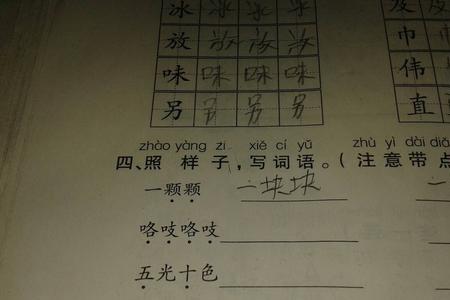 冰 冰 冰 冰
放 放 放 放 及
味 味 味 味 巾
另 另 另 另 伟
直
zhào yàng zi xiě cí yǔ zhù yì dài diǎ
四、照样子,写词语。(注意带点
一颗颗 一块块
咯吱咯吱
五光十色